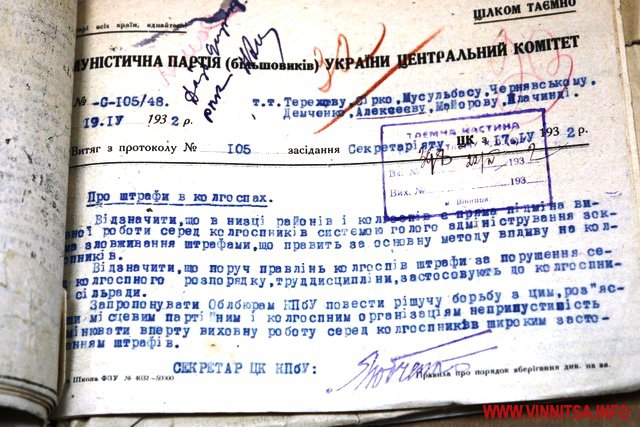 арі всіх країн, єднайте
ЦІЛКОМ ТАЄМНО
МУНІСТИЧНА ПАРТІЯ (більшовиків) УКРАЇНИ ЦЕНТРАЛЬНИЙ КОМІТЕТ
№ -С-105/48.
т.т. Терехову, Сірко, Мусульбасу, Чернявському,
19.ІУ 1932 р.
Демченко, Алексеєву, Майорову, Плачинді.
Витяг з протоколу № 105 засідання Секретаріяту ЦК з 17.ІУ 1932 р.
ТАЄМНА ЧАСТИНА
Вх. № 193
Вих. № 193
м Вінниця
Про штрафи в колгоспах.
Відзначити, що в низці районів і колгоспів є пряма підміна ви-
ної роботи серед колгоспників системою голого адміністрування зок-
ма зловживання штрафами, що править за основну методу впливу на кол-
спників.
Відзначити, що поруч правлінь колгоспів штрафи за порушення се-
колгоспного розпорядку, труддисципліни, застосовують до колгоспни-
сільради.
Запропонувати Облбюрам КПбУ повести рішучу борьбу з цим, роз"яс-
ши місцевим парті"ним і колгоспним організаціям неприпустимість
мінювати вперту виховну роботу серед колгоспників широким засто-
анням штрафів.
СЕКРЕТАР ЦК КПбУ:
Школа ФЗУ № 4032—50000
Правила про порядок зберігання див. на зв.
WWW.VINNITSA.INFO